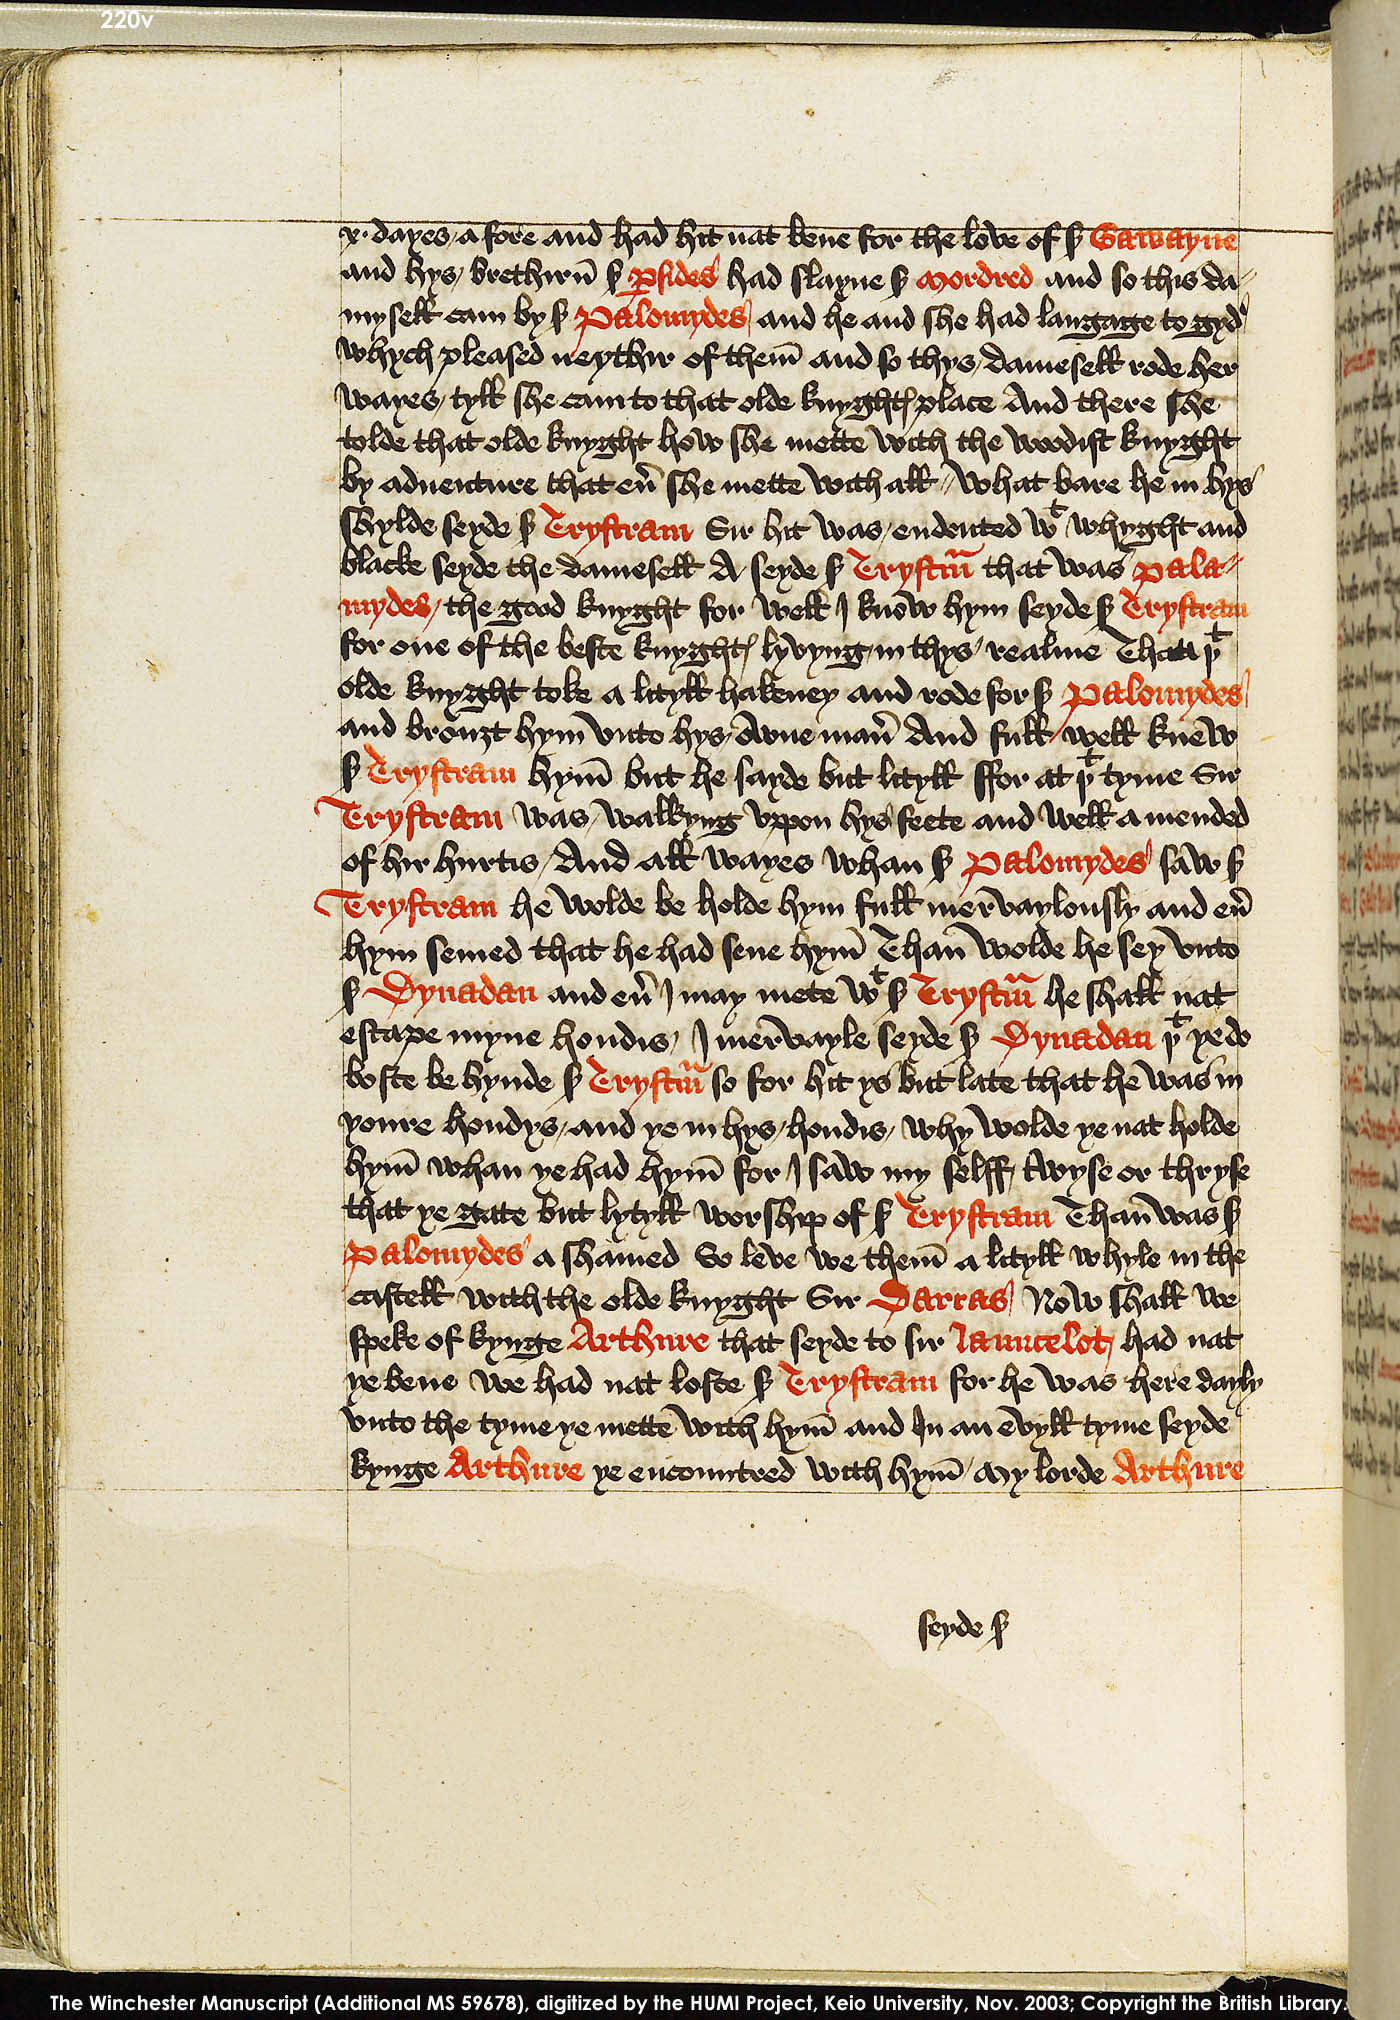 220v
x. dayes a fore and had hit nat bene for the love of ẜ Gawayne
and hys brethirn̄ ẜ ꝑsides had slayne ẜ Mordred and so this da-
mysell cam by ẜ Palomydes and he and she had langage to gydͬ
whych pleased neythir of them̄ and so thys damesell rode her
wayes tyll she cam to that olde knyghtꝭ place And there she
tolde that olde knyght how she mette with the wodist knyght
by adventure that eũ she mette with all // What bare he in hys
shylde seyde ẜ Trystram Sir hit was endented wᵗ whyght and
blacke seyde the damesell A seyde ẜ Trystrm̄ that was Pala-
mydes the good knyght for well I know hym seyde ẜ Trystram
for one of the beste knyghtꝭ lyvyng in thys realme Than þᵗ
olde knyght toke a lityll hakeney and rode for ẜ Palomydes
and brouȝt hym vnto hys owne man̄ And full well knew
ẜ Trystram hym̄ but he sayde but lityll ffor at þᵗ tyme Sir
Trystram was walkyng vppon hys feete and well a mended
of hir hurtis / And all wayes whan ẜ Palomydes saw ẜ
Trystram he wolde be holde hym full mervaylously and eũ
hym semed that he had sene hym̄ Than̄ wolde he sey vnto
ẜ Dynadan and eũ I may mete wᵗ ẜ Trystrm̄ he shall nat
escape myne hondis / I mervayle seyde ẜ Dynadan þᵗ ye do
boste be hynde ẜ Trystrm̄ so for hit ys but late that he was in
youre hondys and ye in hys hondis / why wolde ye nat holde
hym̄ whan ye had hym̄ for I saw my selff twyse or thryse
that ye gate but lytyll worship of ẜ Trystram Than̄ was ẜ
Palomydes a shamed So leve we them̄ a lityll whyle in the
castell with the olde knyght Sir Darras / Now shall we
speke of kynge Arthure that seyde to sir Launcelot had nat
ye bene we had nat loste ẜ Trystram for he was here dayly
vnto the tyme ye mette with hym̄ and In an evyll tyme seyde
kynge Arthure ye encountred with hym̄ / My lorde Arthure
seyde ẜ
The Winchester Manuscript (Additional MS 59678), digitized by the HUMI Project, Keio University, Nov. 2003; Copyright the British Library.